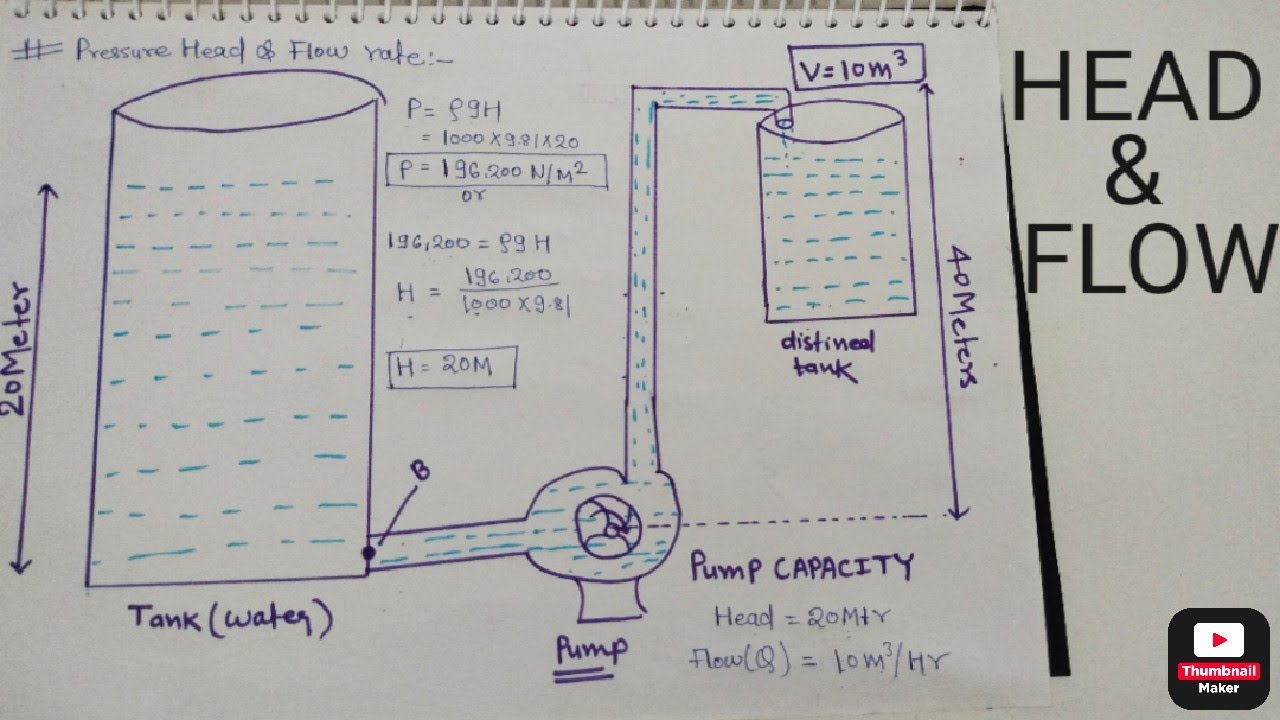 # Pressure Head & Flow rate:-
P = ρgH
= 1000×9.81×20
P = 196.200 N/m²
or
196,200 = ρgH
H = 196.200
1000×9.81
H = 20M
20Meter
Tank(water)
B
Pump
V=10m³
distined
tank
40Meters
Pump CAPACITY
Head = 20Mtr
Flow(Q) = 10m³/Hr
HEAD
&
FLOW
Thumbnail
Maker